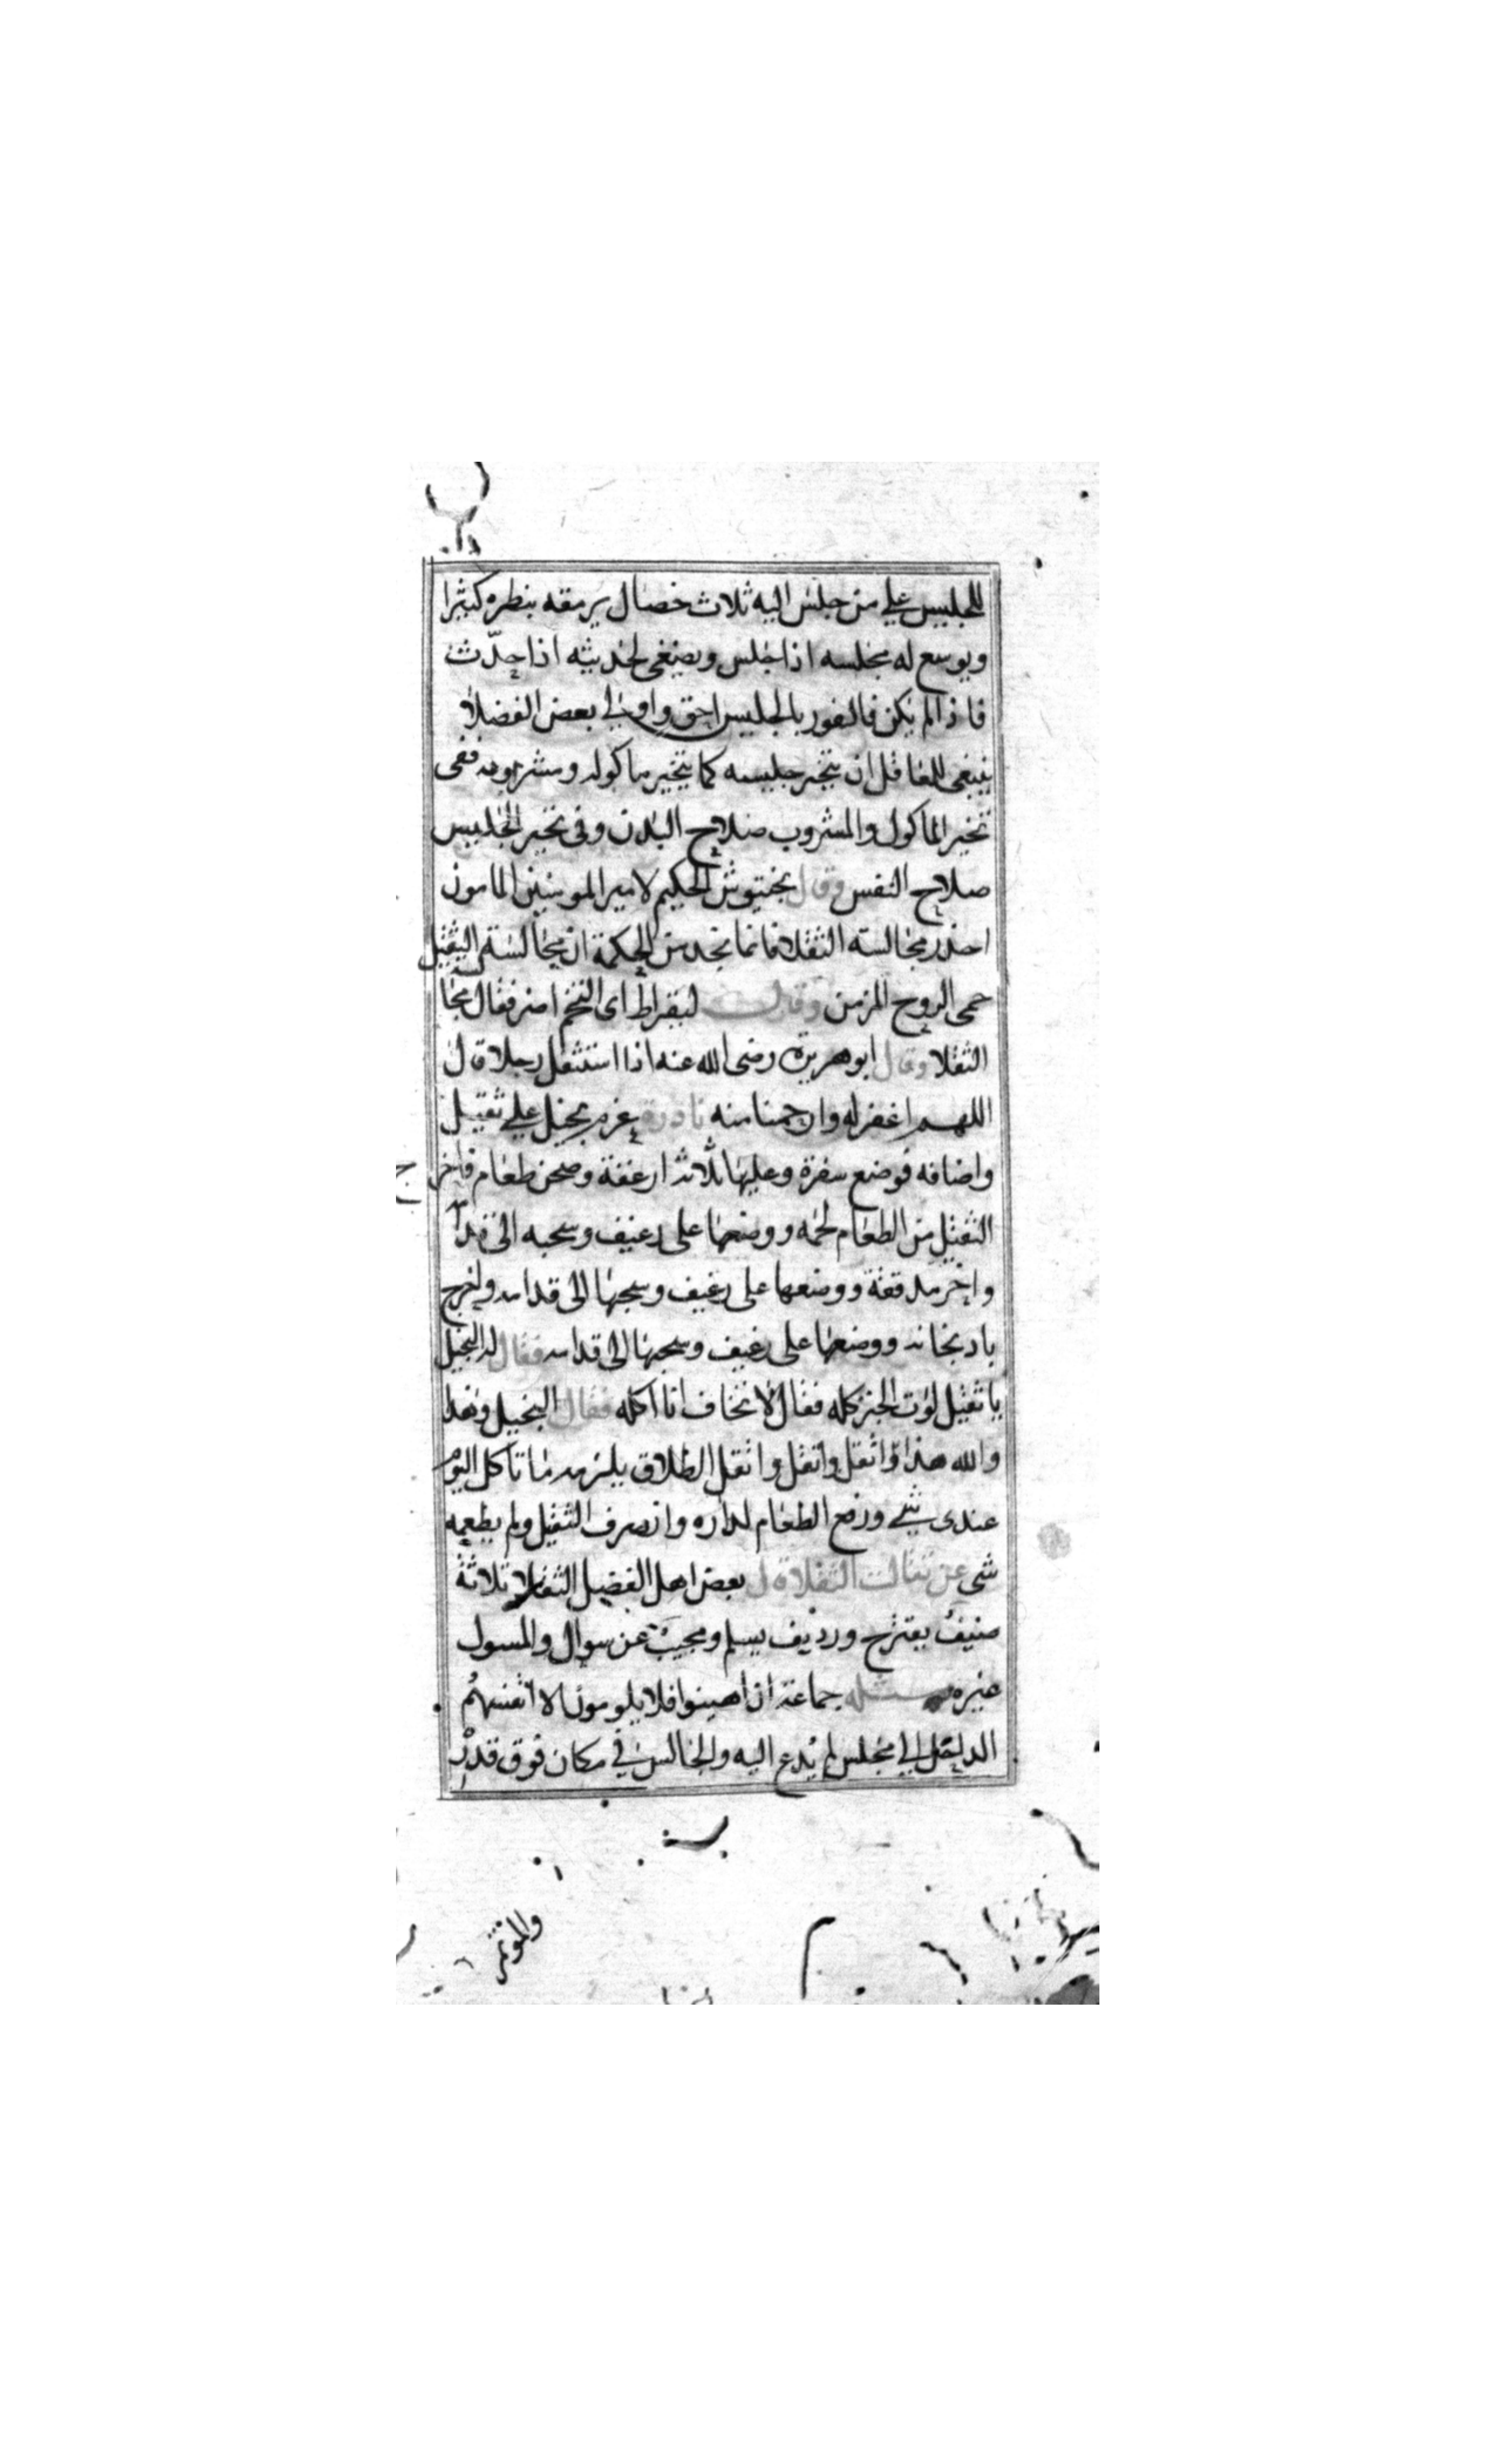 للجليس علي من جلس اليه ثلاث خصال يرمقه بنظره كثيرا
ويوسع له مجلسه اذا جلس ويصغى لحديثه اذا حدّث
فاذا لم يكن فالفور بالجليس احق واولي بعض الفضلا
ينبغى للعاقل ان يتخير جليسه كما يتخير ماكوله ومشروبه ففى
تخير الماكول والمشروب صلاح البدن وفى تخير الجليس
صلاح النفس وقال بختيوش الحكيم لامير المومنين المامون
احذر مجالسة الثقلا فانما نجد من الحكمة ان مجالسة الثقيل
حمى الروح المزمن وقال لبقراط اى التخم اضر فقال مجا
لسة
الثقلا وقال ابو هريرة رضى الله عنه اذا استثقل رجلا قال
اللهم اغفر له وارحمنا منه نادرة عزم بخيل علي ثقيل
واضافه فوضع سفرة وعليها ثلاثة ارغفة وصحن طعام فاخر ج
الثقيل من الطعام لحمه ووضعها على رغيف وسحبه الى قدا
مه
واخر مدققة ووضعها على رغيف وسحبها الى قدامه واخرج
بادنجانه ووضعها على رغيف وسحبها الى قدامه فقال له البخيل
يا ثقيل لوت الخبز كله فقال لا تخاف انا اكله فقال البخيل وهذا
والله هذا واثقل واثقل واثقل الطلاق يلزمه ما تاكل اليوم
عندى شي ورفع الطعام لداره وانصرف الثقيل ولم يطعمه
شى عن ثقالت الثقلا قال بعض اهل الفضل الثقلا ثلاثة
ضيف يقترح ورديف يسلم ومجيب عن سوال والمسول
غيره جماعة ان اهينوا فلا يلومون الا انفسهم
الداخل الي مجلس لم يدع اليه والجالس في مكان فوق قدر
والموتمر